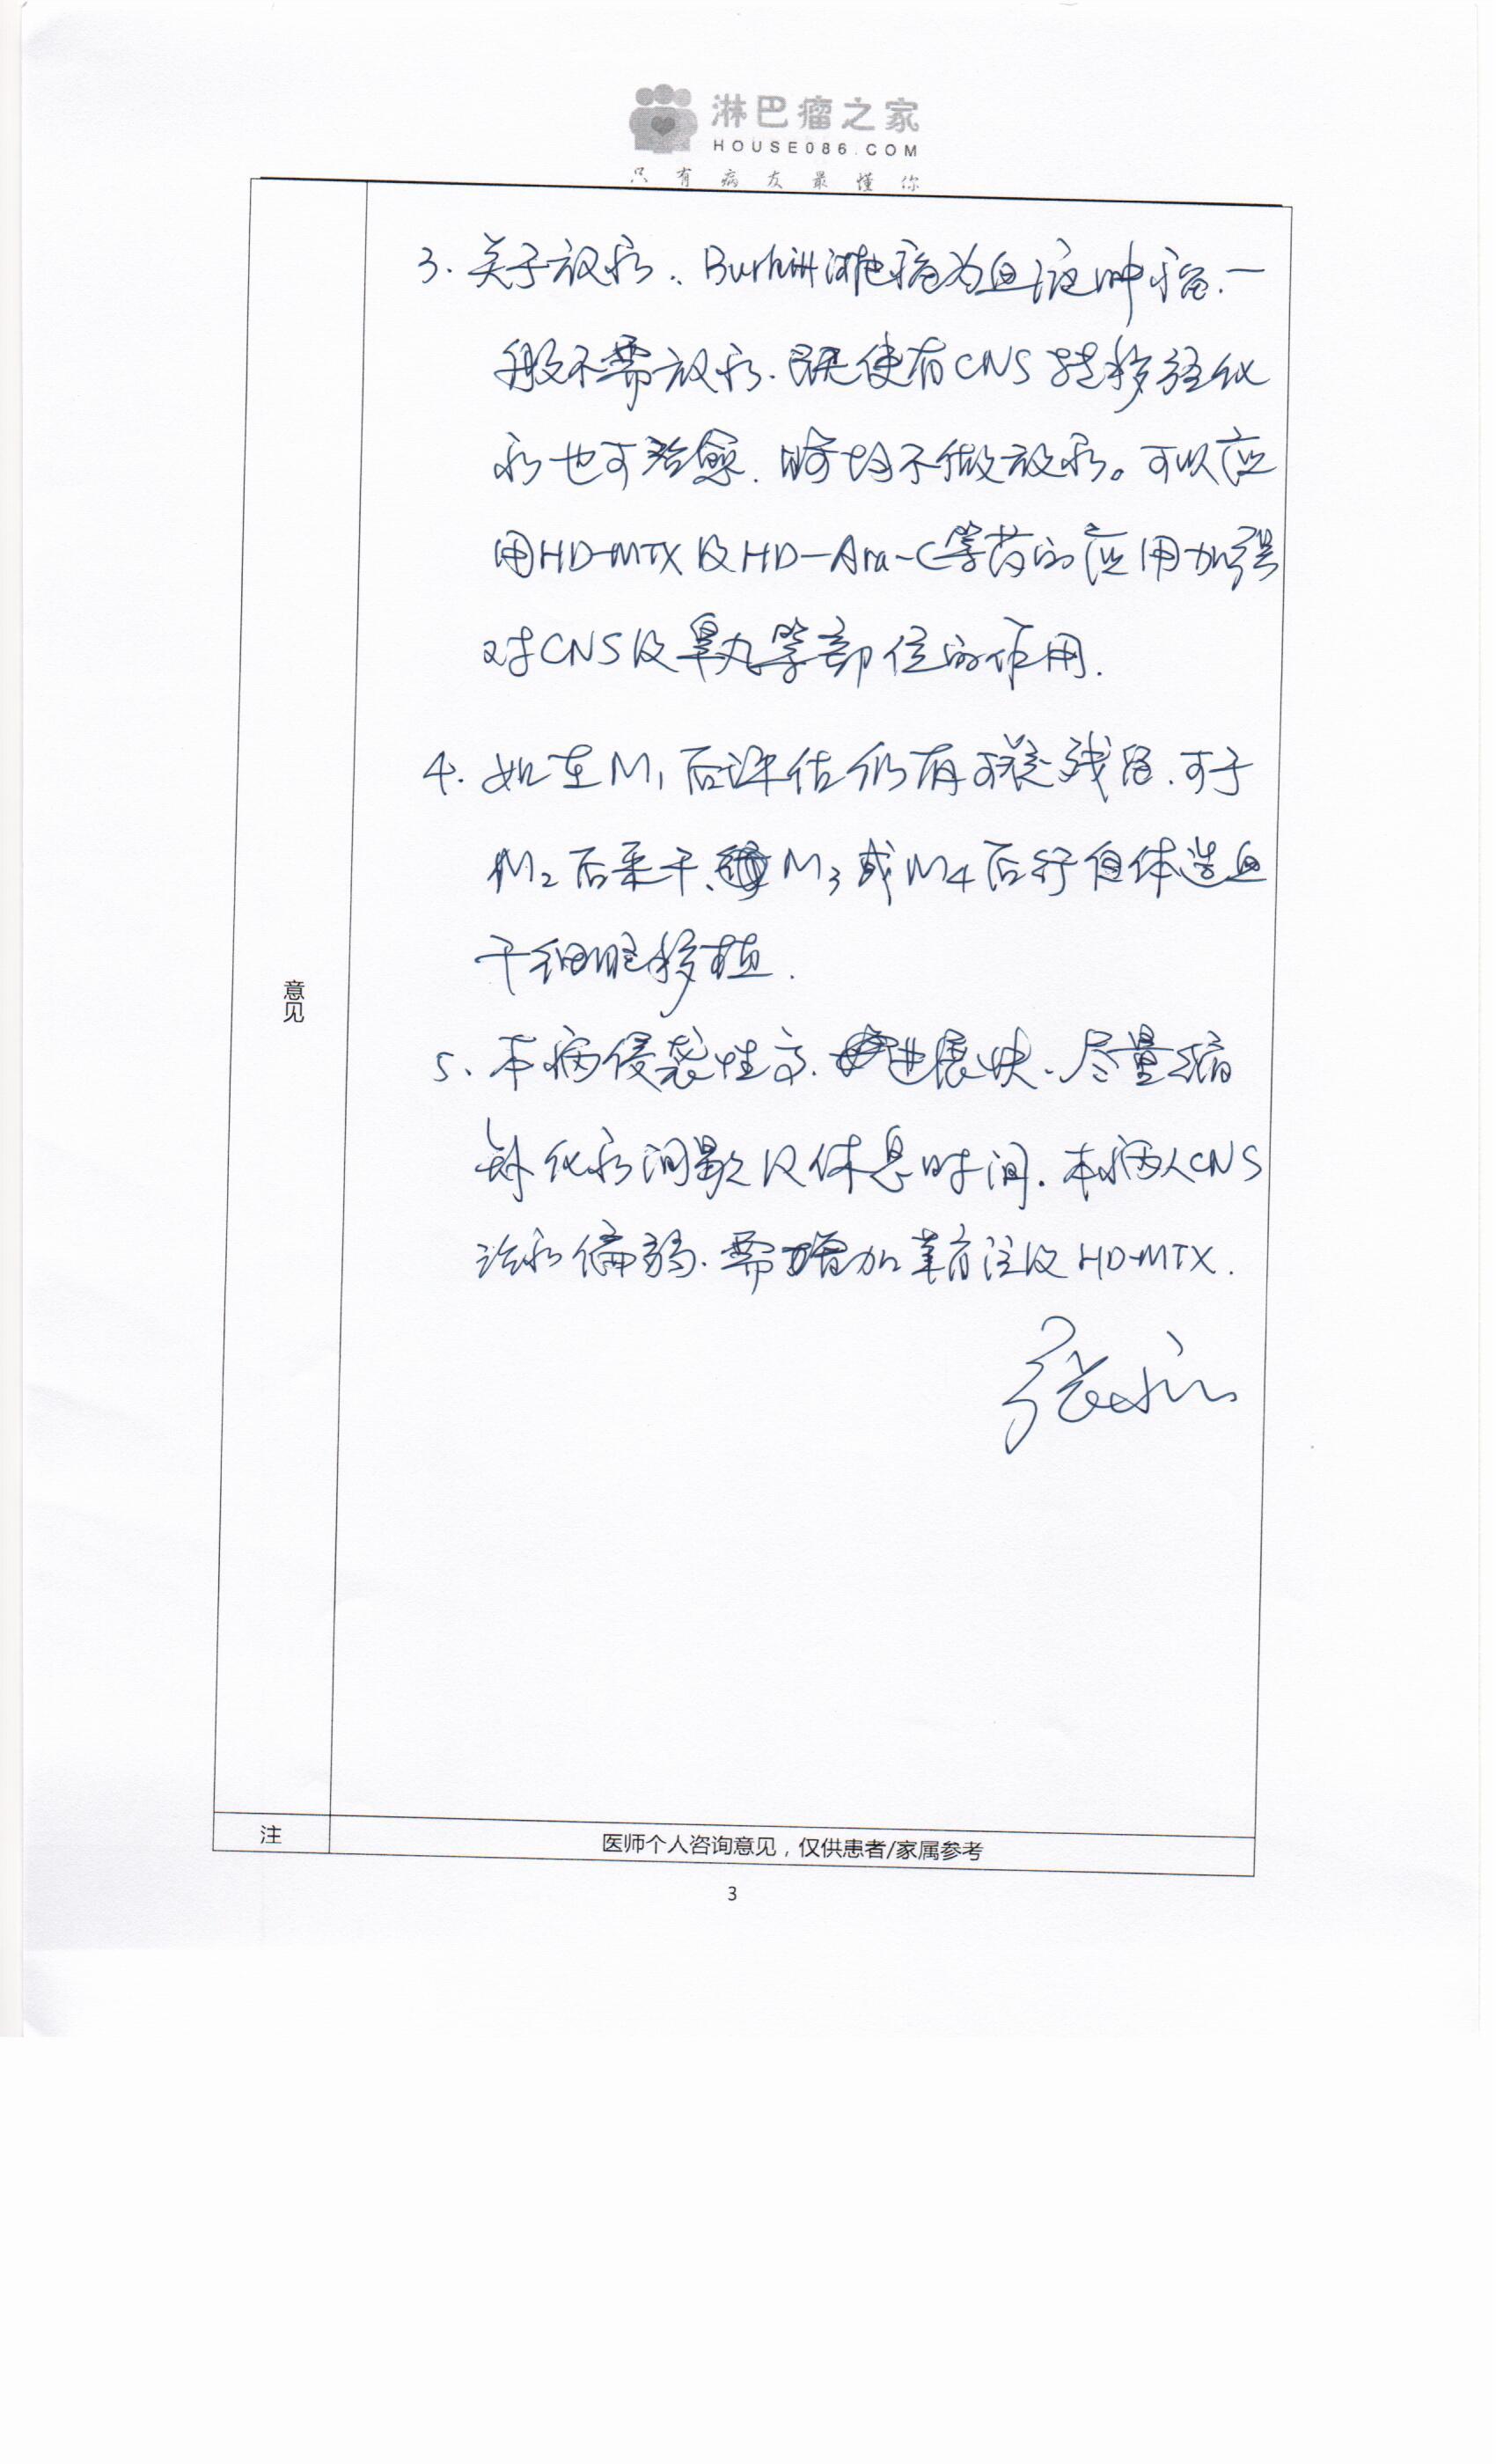 淋巴瘤之家
HOUSE086.COM
只有病友最懂你
3. 关于放疗、Burkitt淋巴瘤为血液肿瘤.一
般不需放疗.既使有CNS转移经化
疗也可治愈.时均不做放疗。可以应
用HD-MTX及HD-Ara-C等药的应用加强
对CNS及睾丸等部位的作用.
4. 如在M1后评估仍有可疑残留.可于
M2后采干、M3或M4后行自体造血
干细胞移植.
意见
5、本病侵袭性高.进展快、尽量缩
短化疗间歇及休息时间.本病人CNS
治疗偏弱.需增加鞘注及HD-MTX.
张永红
注
医师个人咨询意见，仅供患者/家属参考
3